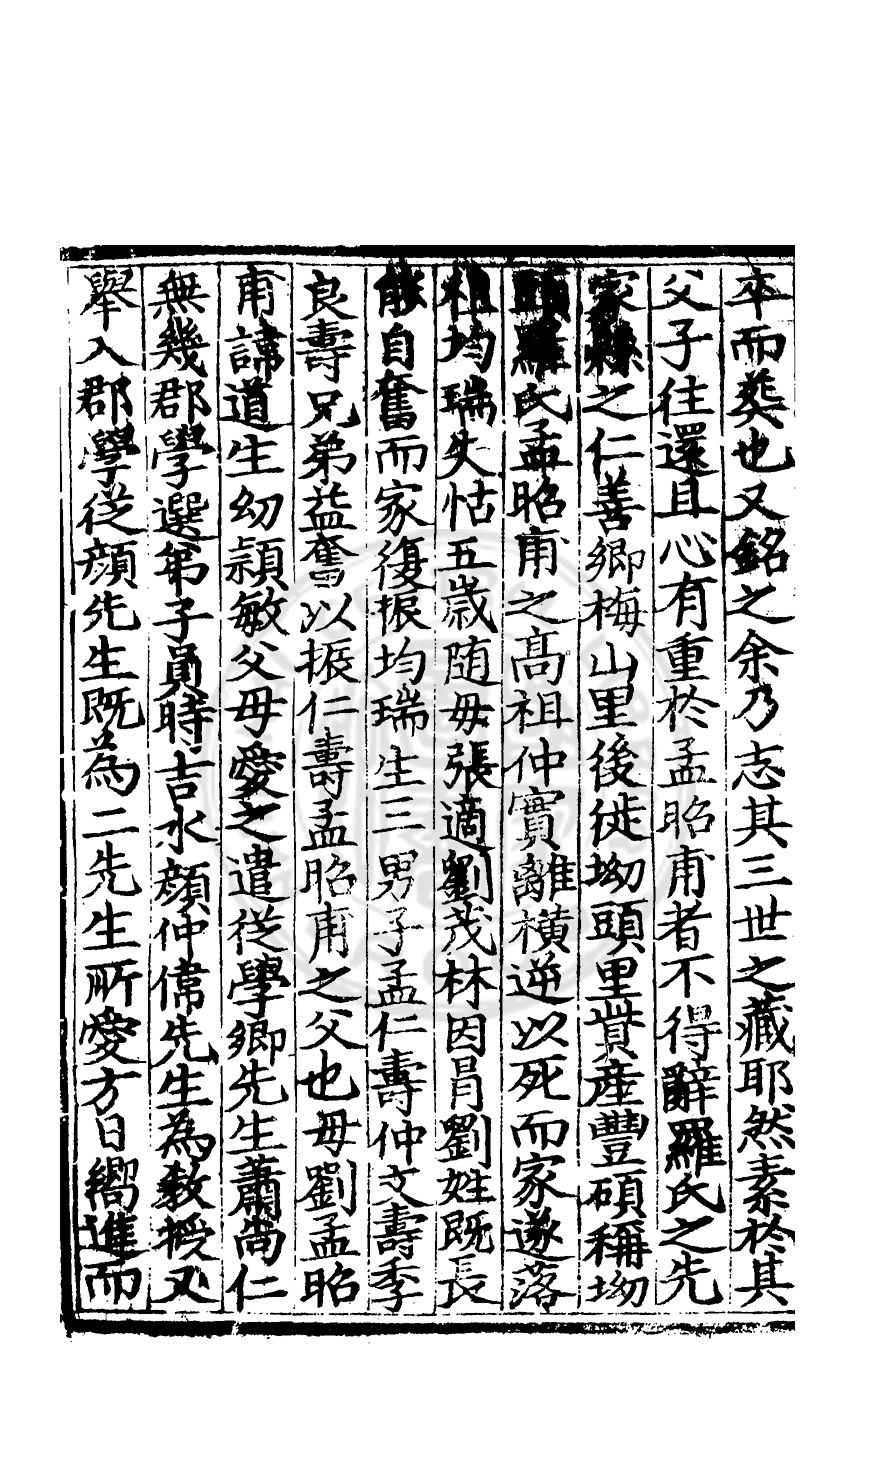 卒而葬也又銘之余乃志其三世之藏耶然素於其
父子往還且心有重於孟昭甫者不得辭羅氏之先
家縣之仁善鄉梅山里後徙坳頭里貲產豐碩稱坳
頭羅氏孟昭甫之高祖仲實離橫逆以死而家遂落
祖均瑞失怙五歲随毋張適劉茂林因冒劉姓既長
能自奮而家復振均瑞生三男子孟仁壽仲文壽季
良壽兄弟益奮以振仁壽孟昭甫之父也毋劉孟昭
甫諱道生幼穎敏父毋愛之遣從學鄉先生蕭尚仁
無幾郡學選弟子員時吉水顔仲偉先生為教授又
舉入郡學從顔先生既為二先生所愛方日嚮進而